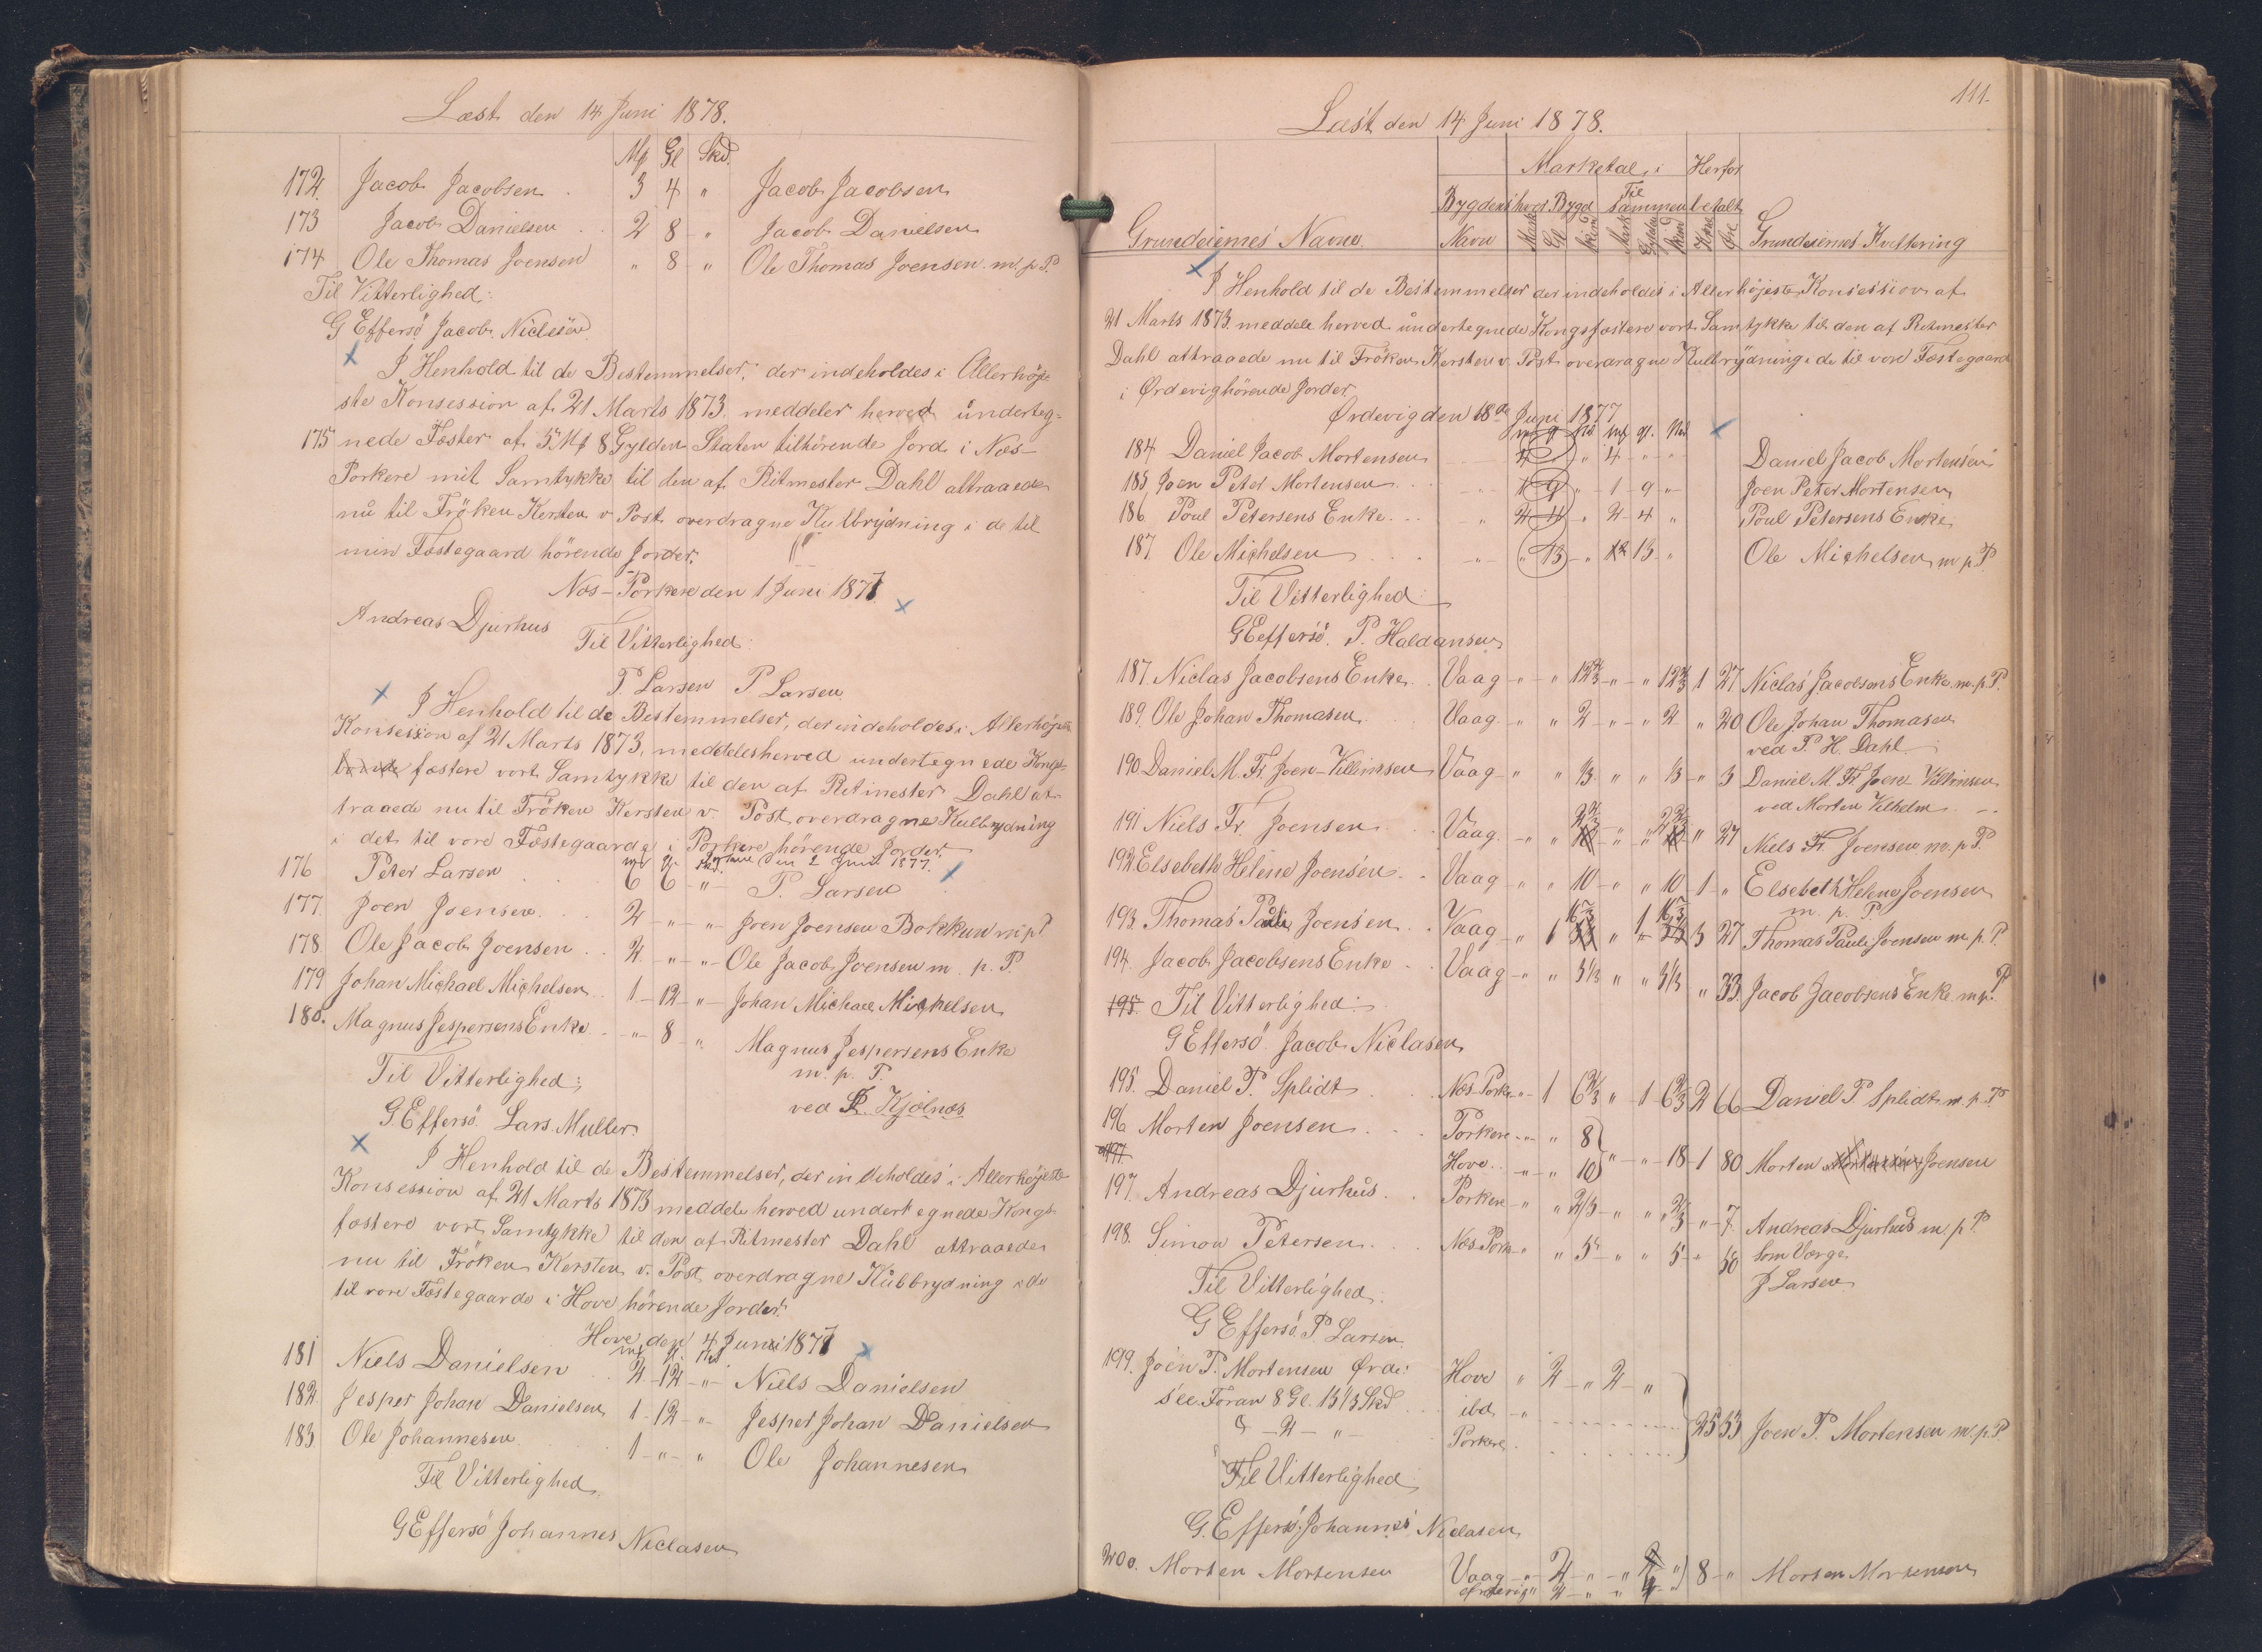 Læst den 14 Juni 1878.
Mf Gl Skd.
172. Jacob Jacobsen . 3 4 " Jacob Jacobsen
173 Jacob Danielsen . . 2 8 - " Jacob Danielsen
174 Ole Thomas Joensen " 8 - " Ole Thomas Joensen m. p. P.
Til Vitterlighed:
G Effersö Jacob Niclasen
I Henhold til de Bestemmelser, der indeholdes i Allerhøje-
ste Konsession af 21 Marts 1873. meddeler herved underteg-
175 nede Fæster af 5 Mf 8 Gylden Staten tilhörende Jord i Næs-
Porkere mit Samtykke til den af Ritmester Dahl attraaede
nu til Fröken Kersten v Post overdragne Kulbrydning i de til
min Fæstegaard hörende Jorder.
Næs-Porkere den 1 Juni 1877.
Andreas Djurhus
Til Vitterlighed:
P. Larsen P Larsen
I Henhold til de Bestemmelser, der indeholdes i Allerhøjeste
Konsession af 21 Marts 1873, meddeles herved undertegnede Kongs-
fæstere vort Samtykke til den af Ritmester Dahl at-
traaede nu til Fröken Kersten v. Post overdragne Kulbrydning
i det til vore Fæstegaarde i Porkere hörende Jorder.
Porkere den 2 Juni 1877.
mf Gl. Skd.
176 Peter Larsen . . 6 6 - " - P. Larsen
177. Joen Joensen . . 2 - " - " - Joen Joensen Bokkun m p P
178. Ole Jacob Joensen . . 2 - " - " - Ole Jacob Joensen m. p. P.
179 Johan Michael Michelsen . . 1 - 12 - " - Johan Michael Michelsen
180. Magnus Jespersens Enke - " - 8 - " Magnus Jespersens Enke
m. p. P.
Til Vitterlighed:
ved Kjølnæs
G. Effersö Lars Muller.
I Henhold til de Bestemmelser, der indeholdes i Allerhøjeste
Konsession af 21 Marts 1873 meddele herved undertegnede Kongs-
fæstere vort Samtykke til den af Ritmester Dahl attraaede
nu til Fröken Kersten v. Post overdragne Kulbrydning i de
til vore Fæstegaarde i Hove hörende Jorder.
Hove den 4 Juni 1877
mf Gl. Skd
181 Niels Danielsen . . 2 - 12 - " - Niels Danielsen
182. Jesper Johan Danielsen 1 - 12 - " - Jesper Johan Danielsen
183 Ole Johannesen . . 1 - " - " Ole Johannesen
Til Vitterlighed
G Effersö Johannes Niclasen
111.
Læst den 14 Juni 1878.
Marketal i Herfor
Bygdens hver Bygd Til sammen betalt
Grundeiernes Navne Navn Mark Gl Skind Mark Gylden Skind Krone Øre Grundeiernes Kvittering
I Henhold til de Bestemmelser der indeholdes i Allerhöjeste Konsession af
21 Marts 1873. meddele herved undertegnede Kongsfæstere vort Samtykke til den af Ritmester
Dahl attraaede nu til Fröken Kersten v. Post overdragne Kulbrydning i de til vore Fæstegaarde
i Ørdevig hörende Jorder.
Ørdevig den 18de Juni 1877
mf g Skd mf gl. Skd
184 Daniel Jacob Mortensen 4 " " 4 - " - " Daniel Jacob Mortensen
185 Joen Peter Mortensen . . - " - 1 9 " - 1 - 9 - " Joen Peter Mortensen
186 Poul Petersens Enke . . . " 2 4 " 2 - 4 " Poul Petersens Enke
187. Ole Michelsen . . - " - " 13 - " 13 - " Ole Michelsen m p. P.
Til Vitterlighed
G Effersö. P. Haldansen
187. Niclas Jacobsens Enke . Vaag - " - " 12 2/3 - " - " 12 2/3 1 27 Niclas Jacobsens Enke m. p. P.
189. Ole Johan Thomasen . . Vaag. - " " 2 - " - " 2 " 20 Ole Johan Thomasen
ved P. H. Dahl
190 Daniel M. Fr. Joen-Villimsen Vaag - " " 1/3 " " 1/3 - " 3 Daniel M. Fr Joen Villimsen
ved Morten Vilhelm - -
191 Niels Fr. Joensen . . Vaag. - " " 2 2/3 " " 2 2/3 " 27 Niels Fr. Joensen m. p. P.
192 Elsebeth Helene Joensen . . Vaag - " " 10 - " " 10 - 1 - " Elsebeth Helene Joensen
m. p. P.
193. Thomas Pauli Joensen . . Vaag - " 1 16 2/3 " 1 16 2/3 3 27 Thomas Pauli Joensen m. p. P.
194. Jacob Jacobsens Enke . . Vaag - " " 3 1/3 " " 3 1/3 " 33. Jacob Jacobsens Enke m p. P
195. Til Vitterlighed:
G Effersö. Jacob Niclasen
195. Daniel P. Splidt . . Næs-Porke - " - 1 6 2/3 " - 1 - 6 2/3 2 66 Daniel P. Splidt m. p. P
196 Morten Joensen . . . Porkere - " - " 8
197. Hove . . - " - " 10 " - " - 18 - 1 80 Morten Joensen
197. Andreas Djurhus . . Porkere - " " 2/3 - " " 2/3 - " - 7. Andreas Djurhus m. p. P
198. Simon Petersen . . . Næs Pork - " " 5 - " " 5 - " 50 som Værge
Til Vitterlighed:
J Larsen
G Effersö P. Larsen.
199. Joen P. Mortensen Ørde: Hove " 2 - " 2 - "
see Foran 8 Gl. 13 1/3 Skd . . . ibd. - " . . . . . .
& - 2 - " - Porkere . . . . . . 25 53 Joen P. Mortensen m. p. P
Til Vitterlighed
G. Effersö. Johannes Niclasen
200. Morten Mortensen Vaag - " - 2 - " - " 2 " 8 - " Morten Mortensen
Ørdevig " 2 - " - " 4 - "